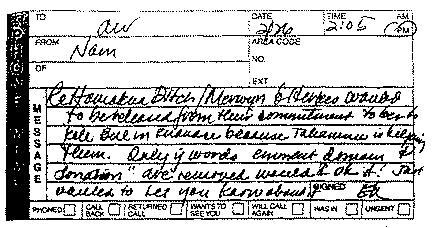 TO aw DATE 2/26 TIME 2:05 AM PM
FROM Nam AREA CODE
OF NO.
EXT
MESSAGE
Re Hamakua Ditch / Merwyn &
wanted
to be released from their commitment to
Bill in Finance because is helping
them. Only if words eminent domain &
"donation" are removed would ok it. Just
wanted to let you know about SIGNED
PHONED CALL BACK RETURNED CALL WANTS TO SEE YOU WILL CALL AGAIN WAS IN URGENT